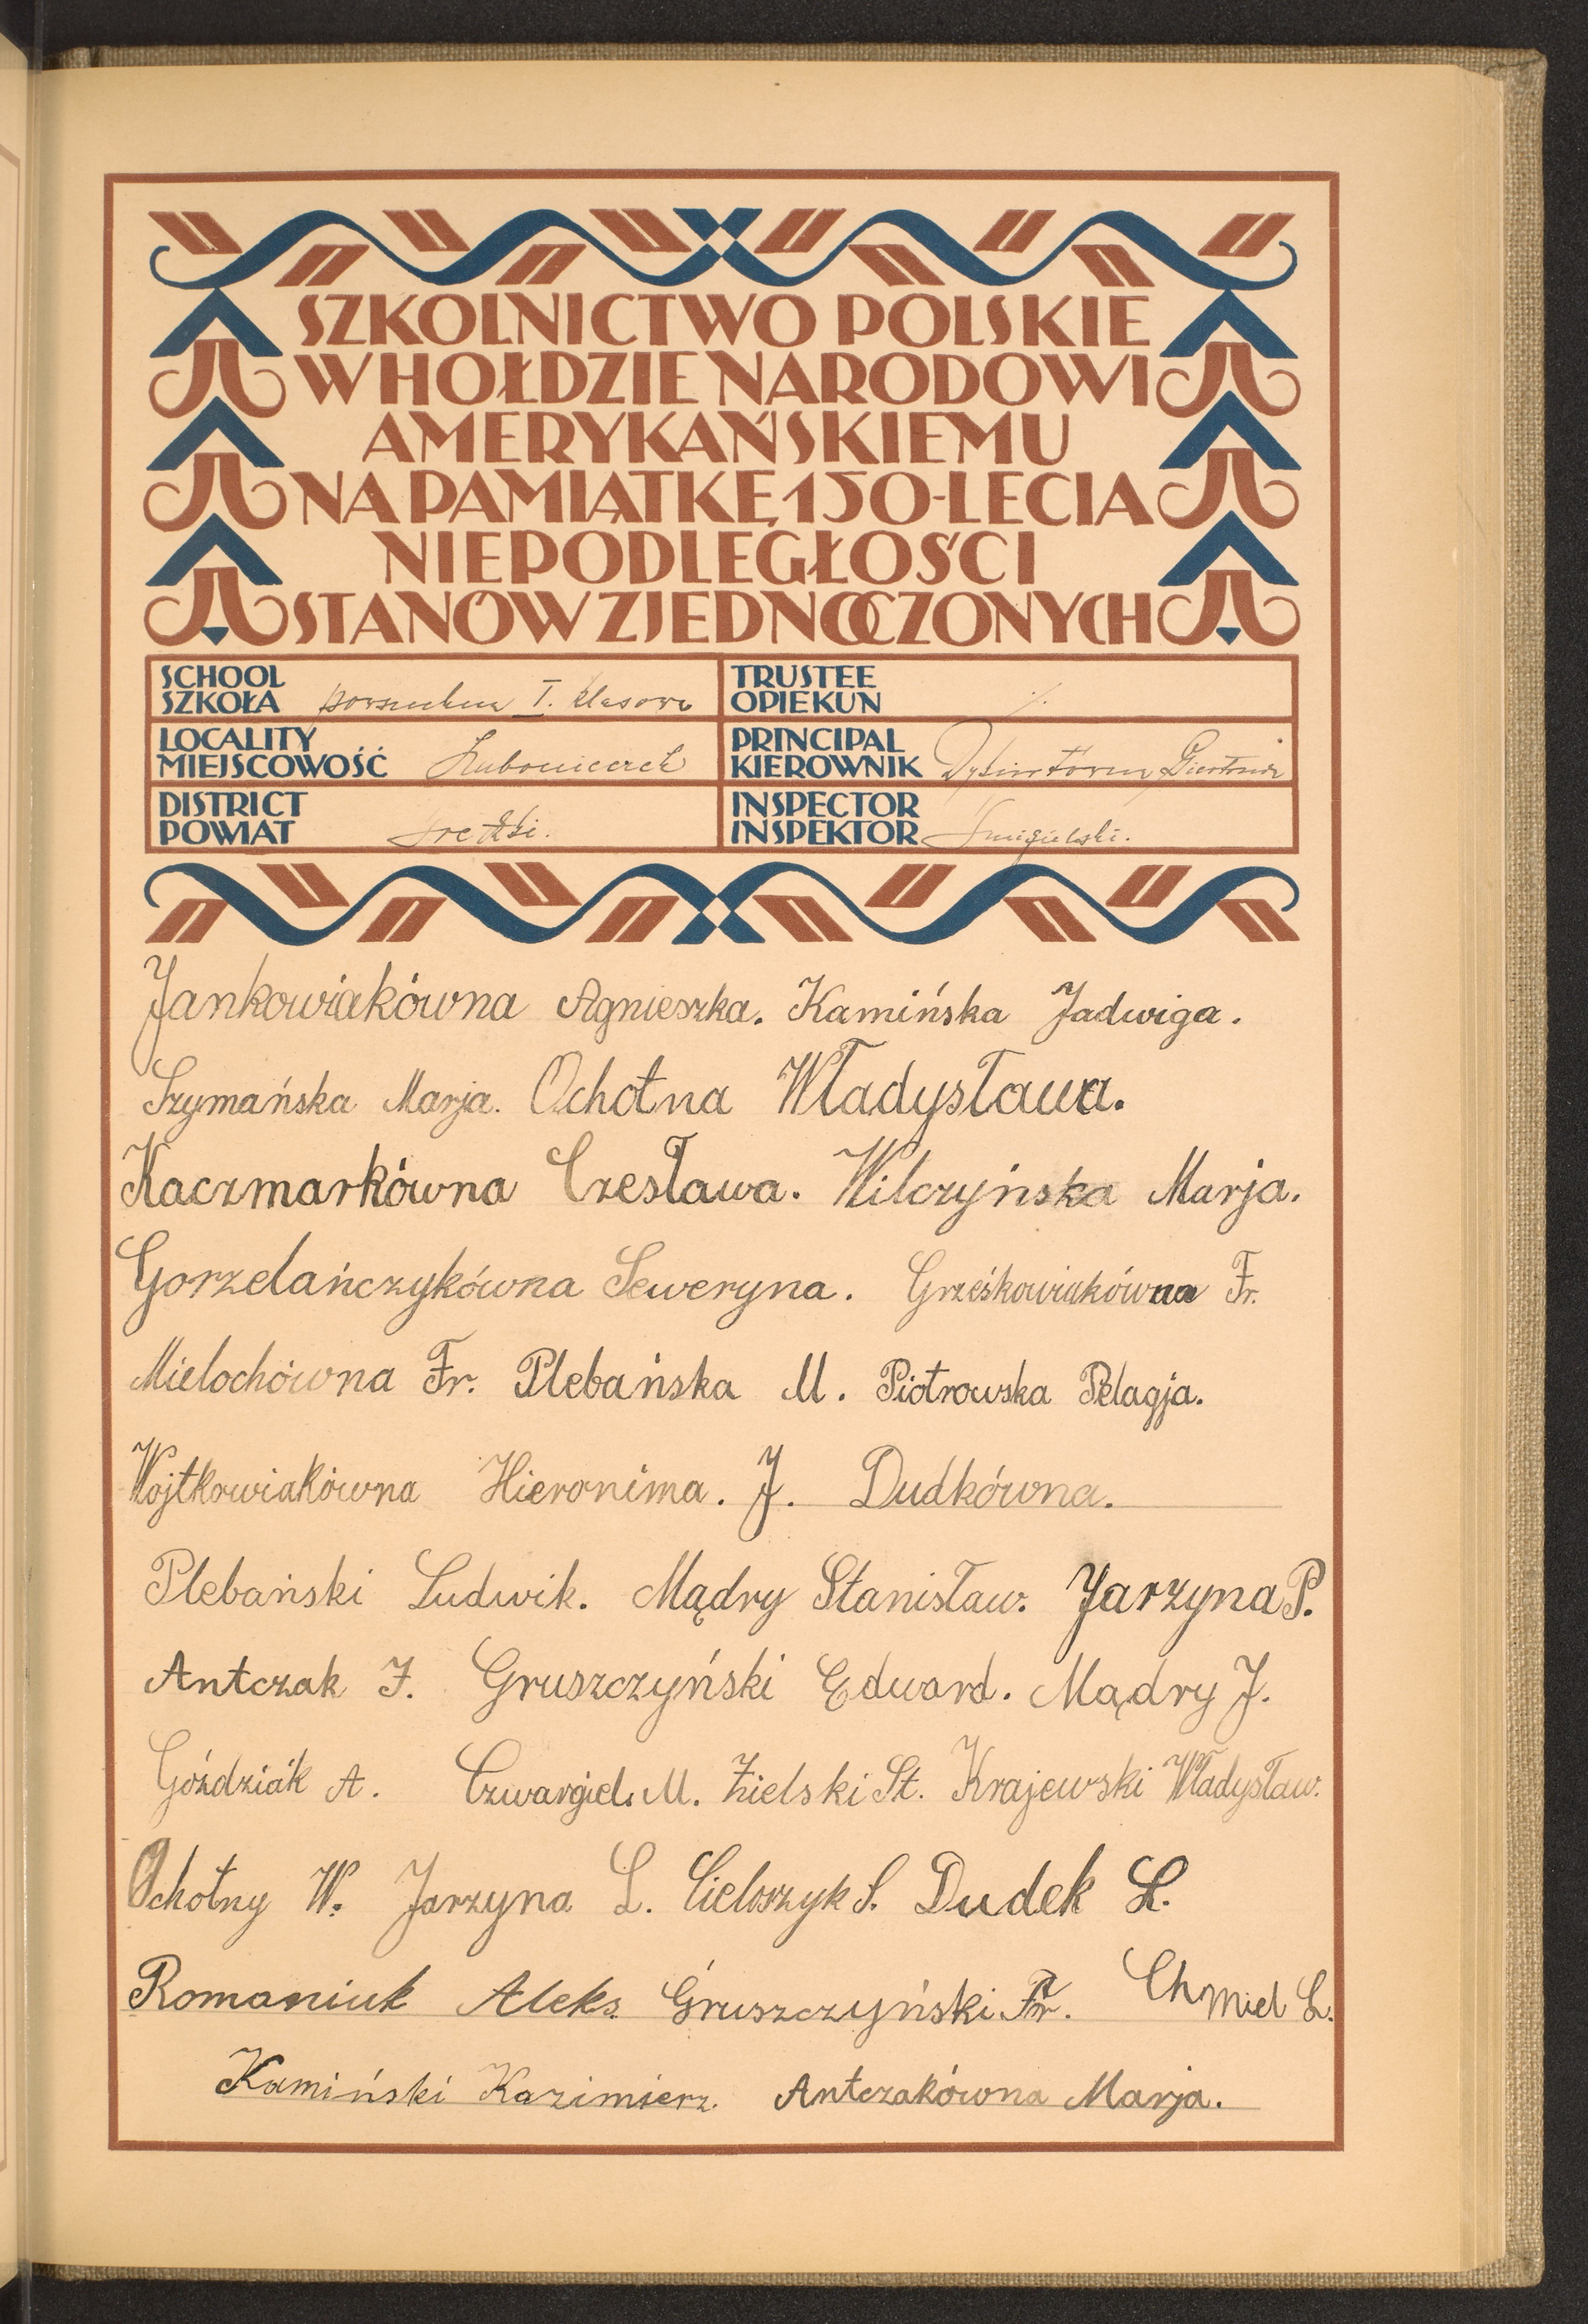 SZKOLNICTWO POLSKIE
W HOŁDZIE NARODOWI
AMERYKAŃSKIEMU
NA PAMIĄTKĘ 150-LECIA
NIEPODLEGŁOŚCI
STANÓW ZJEDNOCZONYCH
SCHOOL
SZKOŁA powszechna I. klasowa
TRUSTEE
OPIEKUN
LOCALITY
MIEJSCOWOŚĆ
PRINCIPAL
KIEROWNIK
DISTRICT
POWIAT
INSPECTOR
INSPEKTOR Smigielski.
Jankowiakówna Agnieszka. Kamińska Jadwiga.
Szymańska Marja. Ochotna Władysława.
Kaczmarkówna Czesława. Wilczyńska Marja.
Gorzelańczykówna Seweryna. Grześkowiakówna Fr.
Mielochówna Fr. Plebańska M. Piotrowska Pelagja.
Wojtkowiakówna Hieronima. J. Dudkówna.
Plebański Ludwik. Mądry Stanisław. Jarzyna P.
Antczak J. Gruszczyński Edward. Mądry J.
Goździak A. Czwargiel. M. Zielski St. Krajewski Władysław.
Ochotny W. Jarzyna L. Cieloszyk S. Dudek L.
Romaniuk Aleks. Gruszczyński Fr. Chmiel L.
Kamiński Kazimierz. Antczakówna Marja.